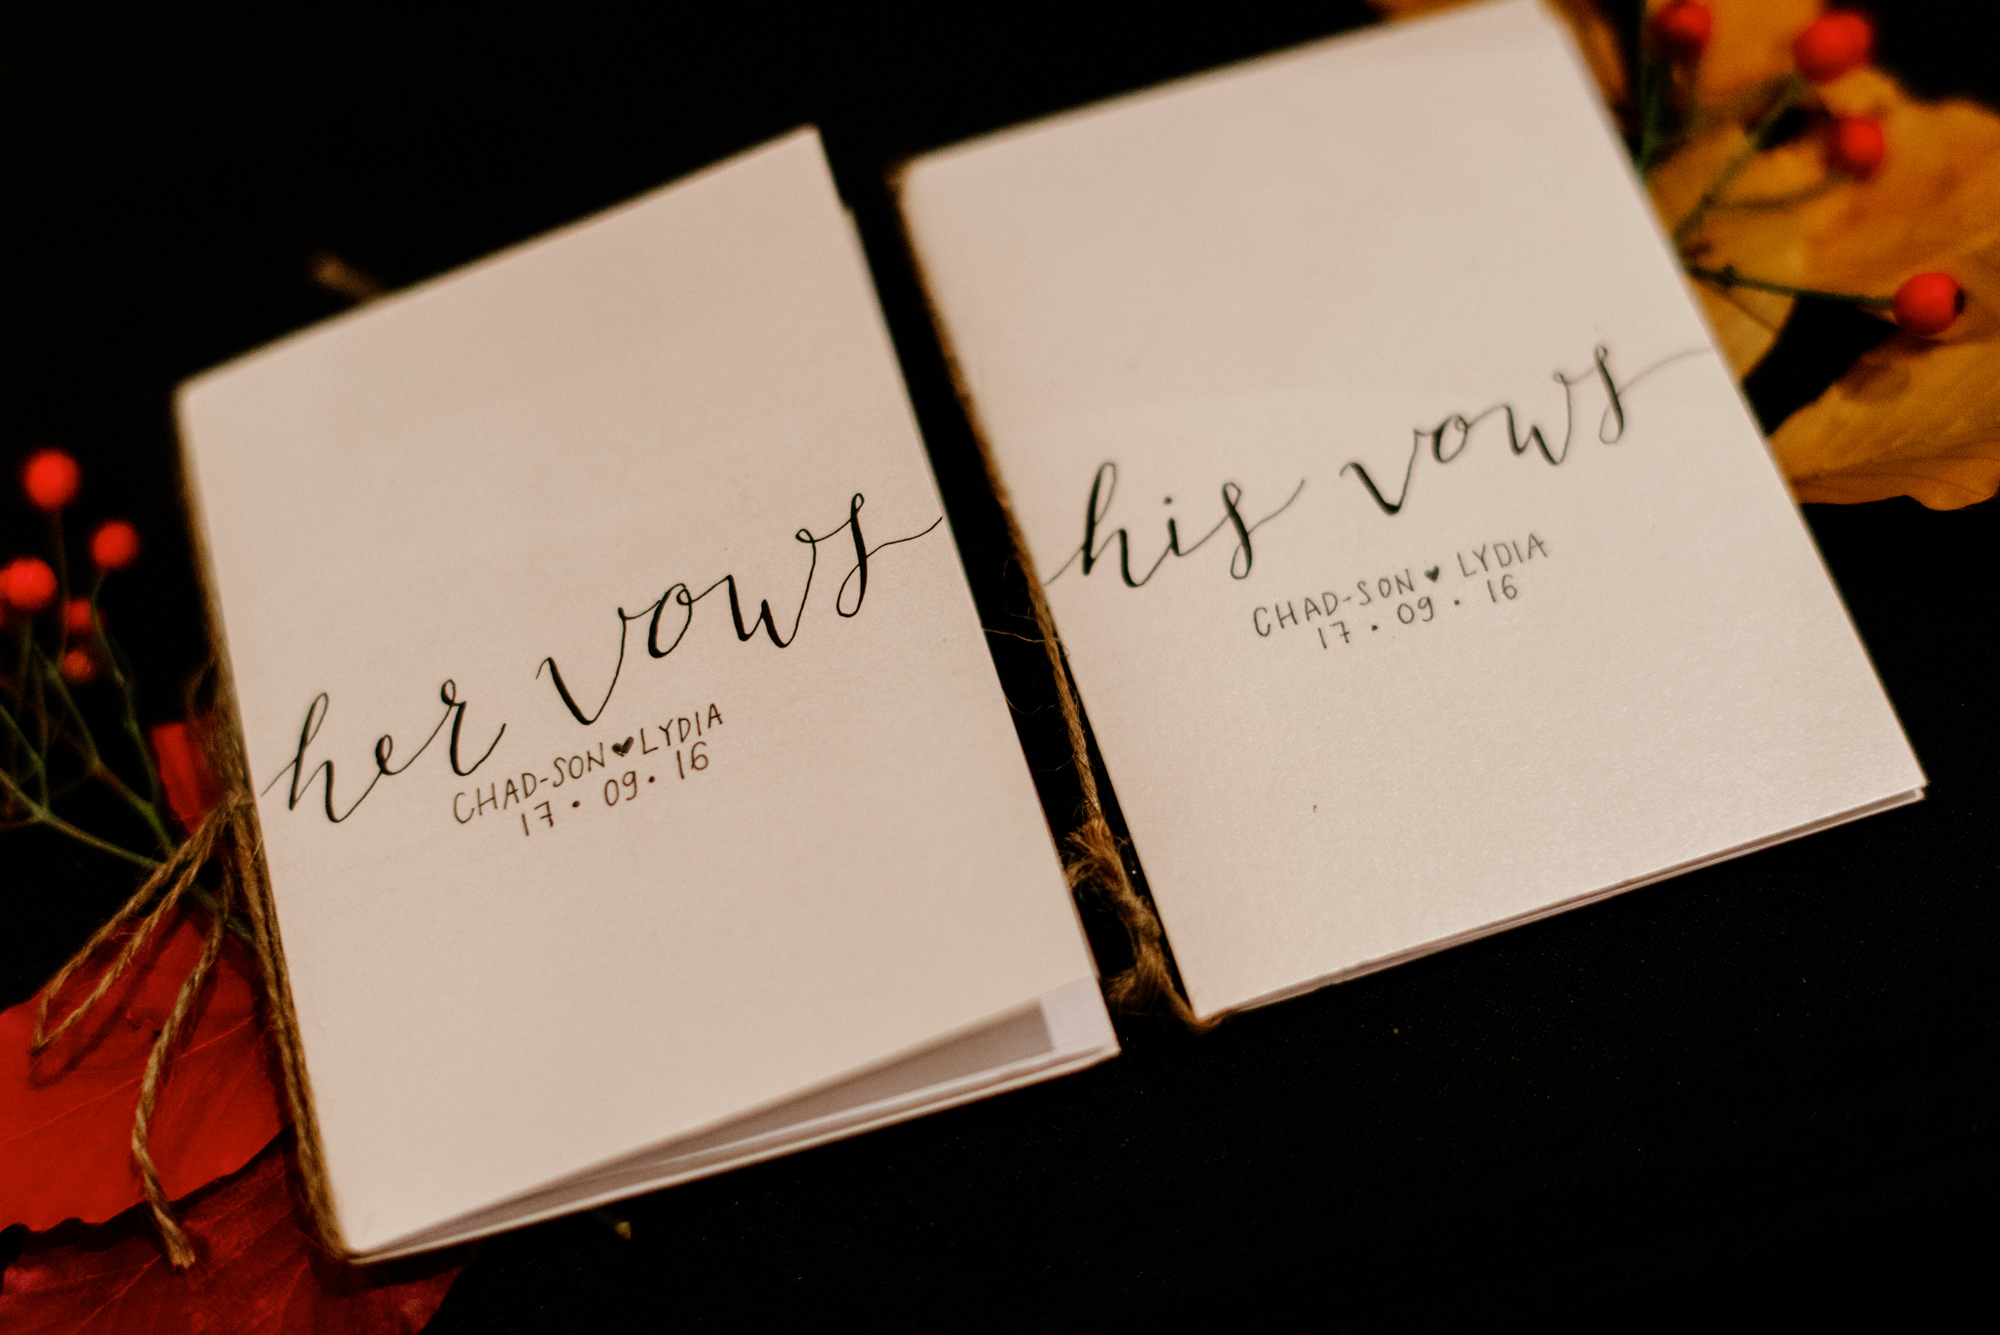 her vows
CHAD-SON ♥ LYDIA
17 • 09 • 16
his vows
CHAD-SON ♥ LYDIA
17 • 09 • 16